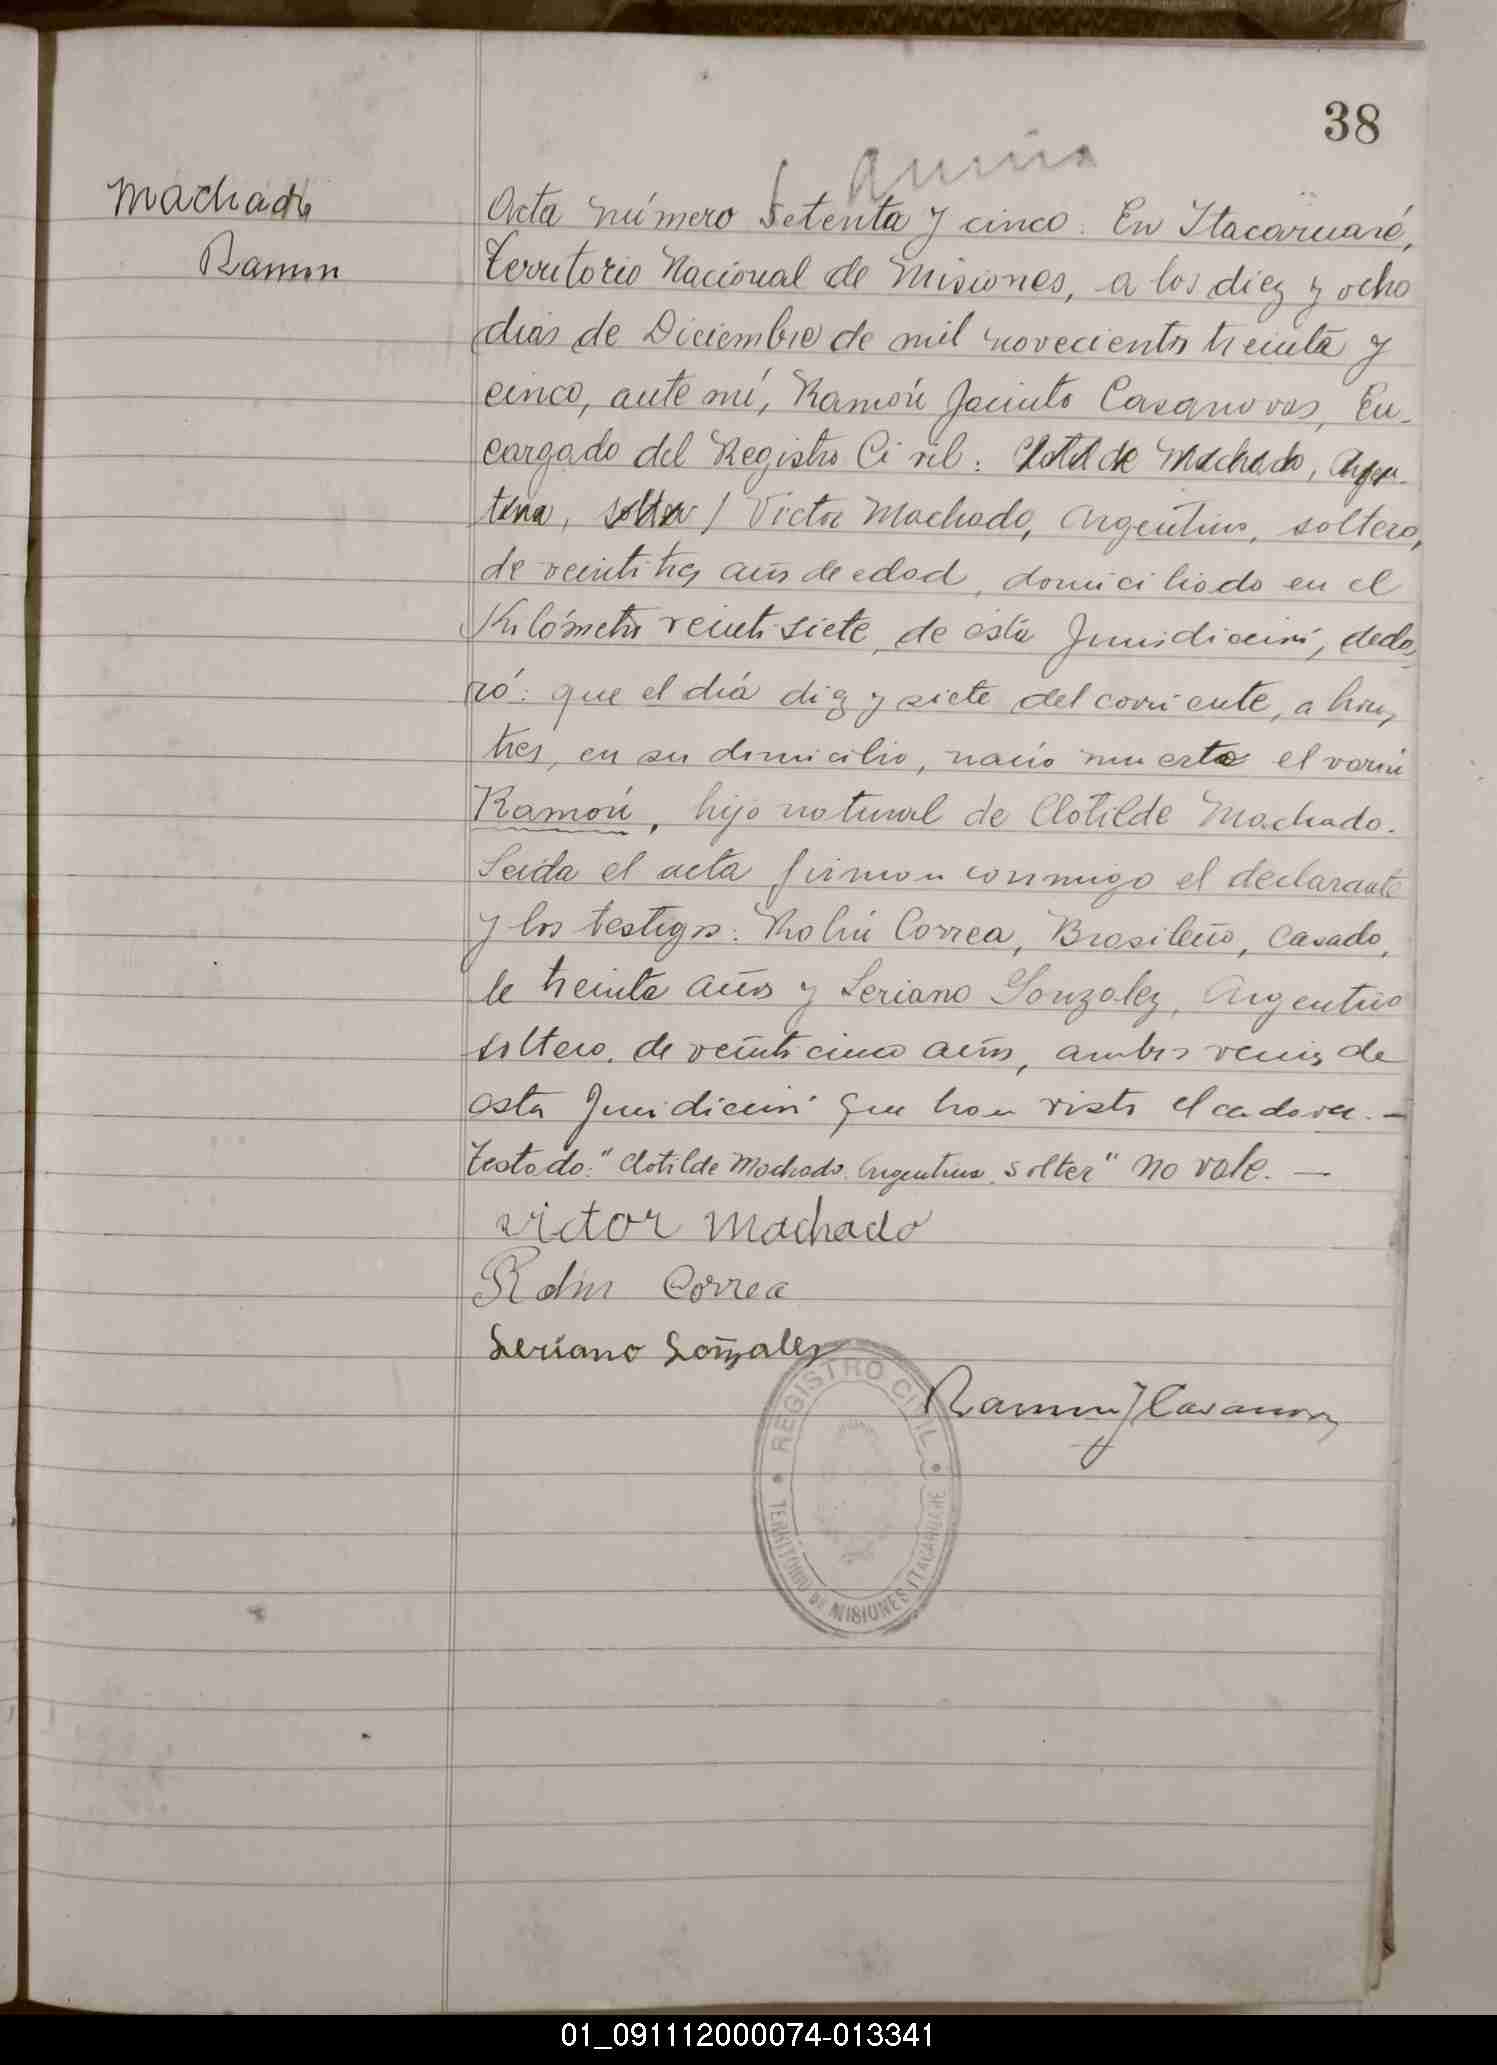 38
Machado
Ramon
Acta número setenta y cinco. En Itacaruaré,
Territorio Nacional de Misiones, a los diez y ocho
dias de Diciembre de mil novecientos treinta y
cinco, ante mí, Ramón Jacinto Casanovas, En-
cargado del Registro Civil: Clotilde Machado, Argen-
tina, solter / Victor Machado, Argentino, soltero,
de veintitres años de edad, domiciliado en el
Kilómetro veintisiete, de esta Jurisdicción, decla-
ró: que el día diez y siete del corriente, a horas
tres, en su domicilio, nació muerto el varón
Ramón, hijo natural de Clotilde Machado.
Leida el acta firman conmigo el declarante
y los testigos: Correa, Brasileño, casado,
de treinta años y Seriano Gonzalez, Argentino
soltero, de veinticinco años, ambos vecinos de
esta Jurisdicción que han visto el cadaver. —
Testado: "Clotilde Machado, Argentina, solter" no vale. —
Victor Machado
Correa
Seriano Gonzalez
Ramon J Casanovas
REGISTRO CIVIL
TERRITORIO DE MISIONES ITACARUARE
01_091112000074-013341